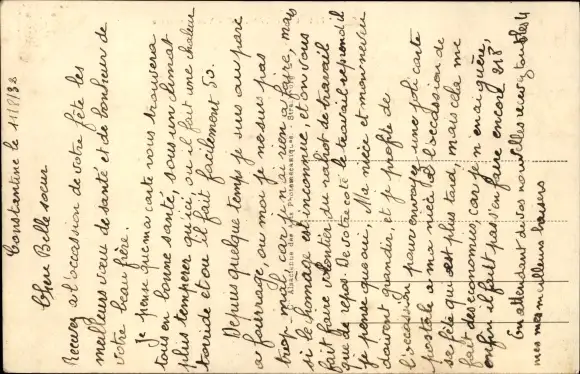 Constantine le 11/8/32
Chère Belle sœur
Recevez a l'occasion de votre fête les
meilleurs vœux de santé et de bonheur de
votre beau frère.
Je pense que ma carte vous trouvera
tous en bonne santé, sous un climat
plus temperer qu'ici, ou il fait une chaleur
torride et ou il fait facilement 50.
Depuis quelque temps je suis au parc
a fourrage ou moi je ne suis pas
trop mal, car je n'ai rien a faire, mais
si le chomage est inconnue, et on vous
fait faire volontier du rabiot de travail
que de repos. De votre coté le travail reprend il
je pense que oui, Ma nièce et mon neveu
doivent grandir, et je profite de
l'occasion pour envoyez une joli carte
postale a ma nièce a l'occassion de
sa fête qui est plus tard, mais cela me
fait des economies, car je n'en ai guère,
enfin il faut pas s'en faire encore 218
En attendant de vos nouvelles recevez tous les 4
mes meilleurs baisers